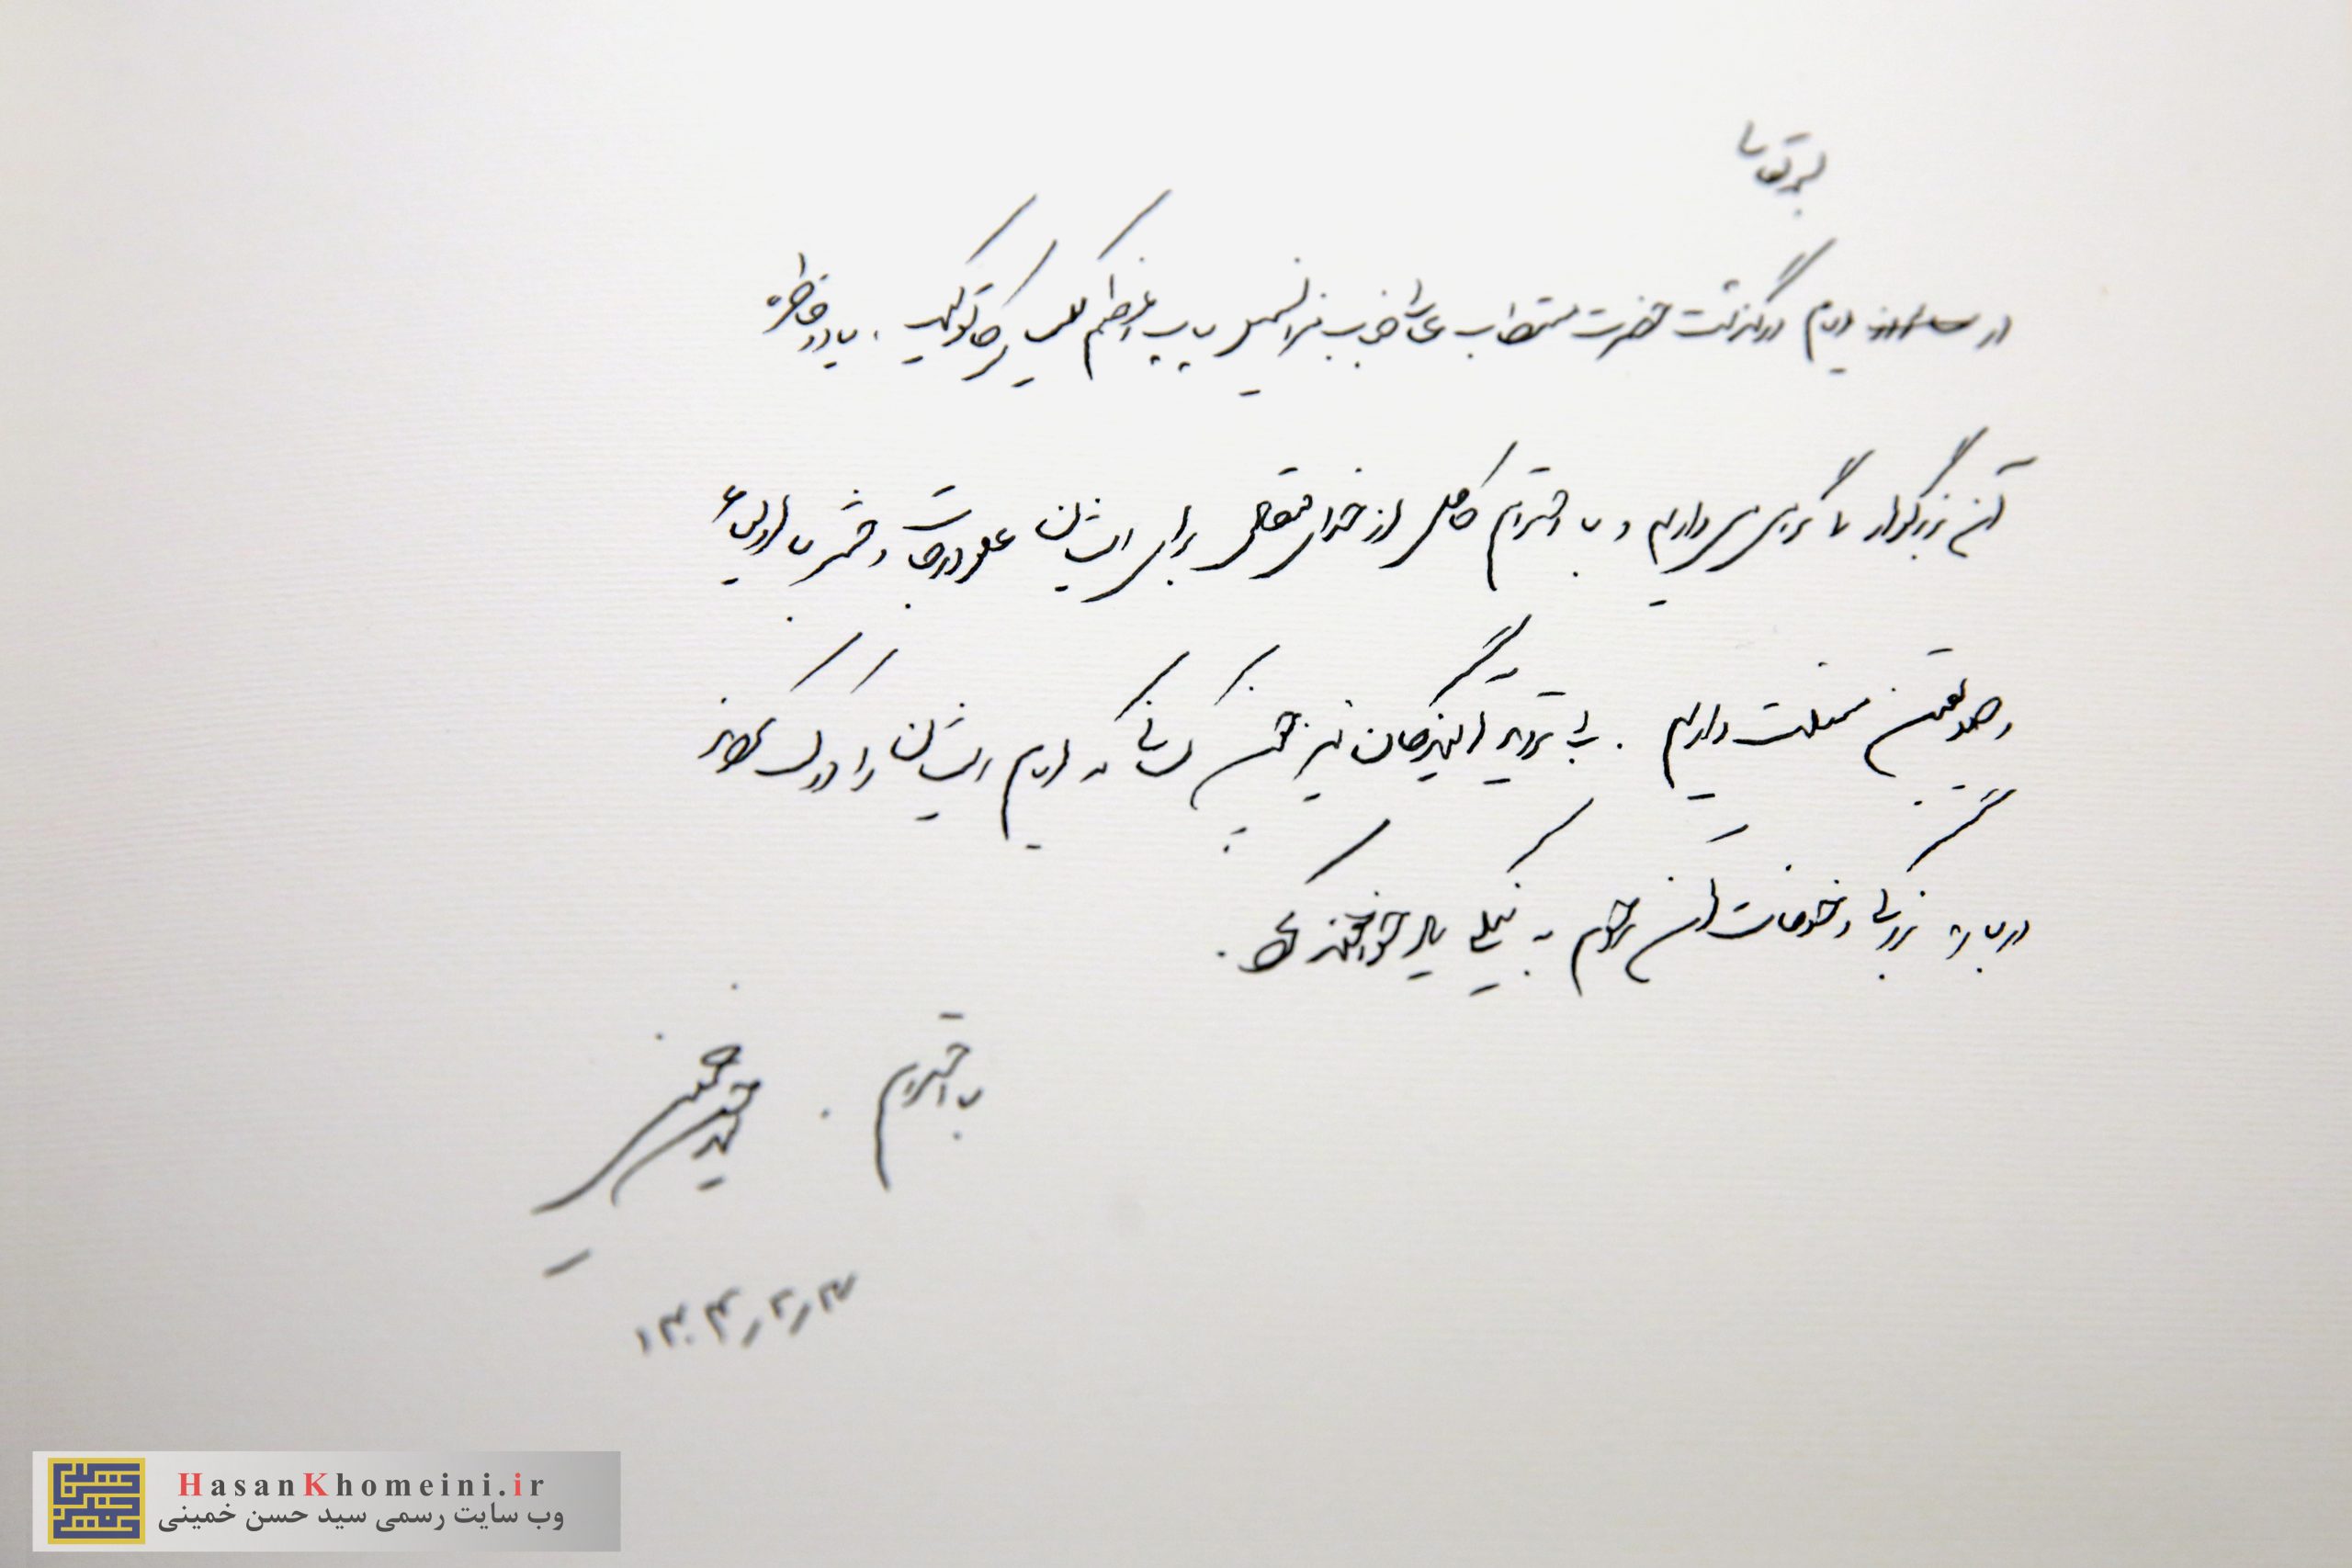 بسمه تعالی
در ایام درگذشت حضرت مستطاب عالیجناب فرانسیس پاپ اعظم کلیسای کاتولیک، یاد و خاطره
آن بزرگوار را گرامی می‌داریم و با احترام کامل از خدای متعال برای ایشان علو درجات و حشر با اولیاء
و صدیقین مسئلت داریم. بی تردید آیندگان نیز چون کسانی که ایام ایشان را درک کردند
درباره بزرگی و خدمات آن مرحوم به نیکی یاد خواهند کرد.
با احترام.
سید حسن خمینی
۱۴۰۴/۲/۳
HasanKhomeini.ir
وب سایت رسمی سید حسن خمینی